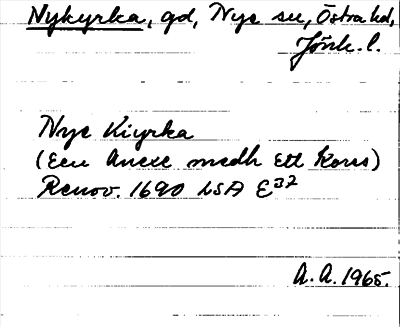 Nykyrka, gd, Nye sn, Östra hd,
Jönk. l.
Nye Kiyrka
(Een Anexe medh Ett Korss)
Renov. 1690 LSA E³²
A. A. 1965.